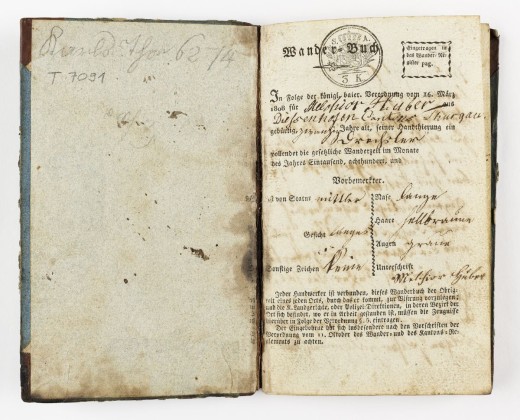 T 7091
Wander-Buch
3 K.
Eingetragen in
das Wander-Re-
gister pag.
In Folge der königl. baier. Verordnung vom 16. März
1808 für Melchior Huber aus
Diessenhofen Canton Thurgau
gebürtig, Jahre alt, seiner Handthierung ein
Drechsler
vollendet die gesetzliche Wanderzeit im Monate
des Jahres Eintausend, achthundert, und
Vorbemerkter.
von Statur mittler
Nase lange
Haare hellbraune
Gesicht langes
Augen graue
Sonstige Zeichen keine
Unterschrift
Melchior Huber
Jeder Handwerker ist verbunden, dieses Wanderbuch der Obrig-
keit eines jeden Orts, durch den er kommt, zur Visirung vorzulegen;
und die K. Landgerichte, oder Polizei-Direktionen, in deren Bezirk der
Ort sich befindet, wo er in Arbeit gestanden ist, müssen die Zeugnisse
hierüber in Folge der Verordnung §. 6. eintragen.
Der Eingebohrne hat sich insbesondere nach den Vorschriften der
Verordnung vom 11. Oktober des Wander- und des Kantons-Re-
glements zu achten.